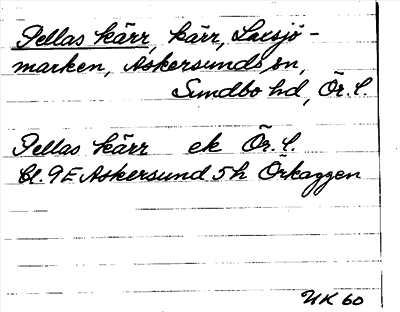 Pellas kärr, kärr, Laxsjö-
marken, Askersunds sn,
Sundbo hd, Ör. l.
Pellas kärr ek Ör. l.
bl. 9E Askersund 5h Örkaggen
UK 60